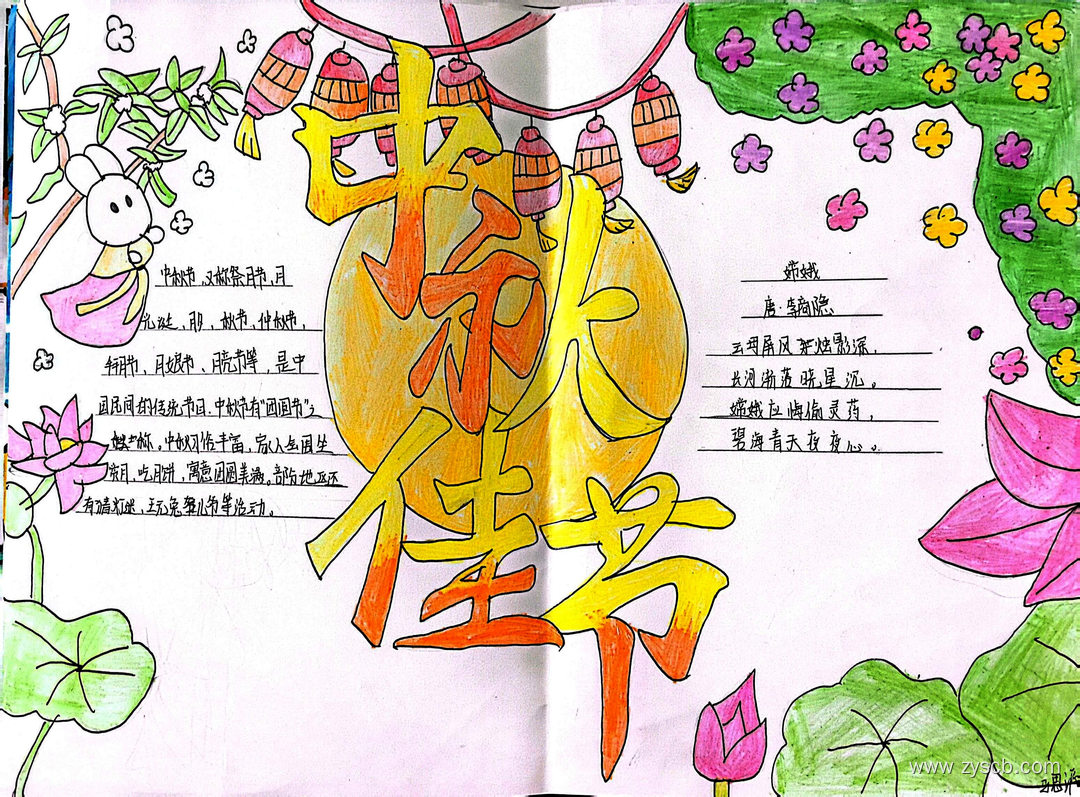 中秋佳节
中秋节,又称祭月节、月
光诞、月夕、秋节、仲秋节、
拜月节、月娘节、月亮节等,是中
国民间的传统节日。中秋节有“团圆节”之
中秋习俗丰富,家人会团坐
赏月,吃月饼,寓意团圆美满。部分地区还
有猜灯谜,玩兔儿爷等活动。
嫦娥
唐·李商隐
云母屏风烛影深,
长河渐落晓星沉。
嫦娥应悔偷灵药,
碧海青天夜夜心。
www.zyscb.com